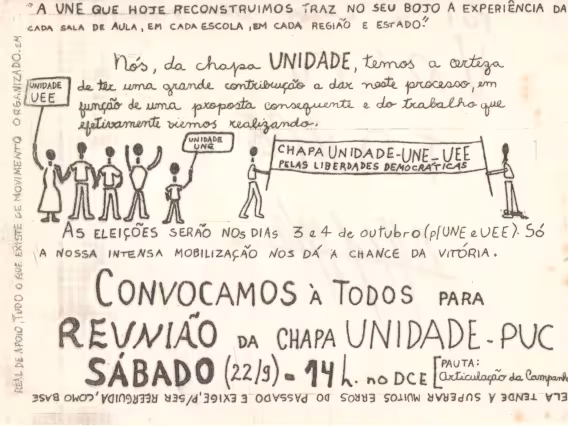 "A UNE QUE HOJE RECONSTRUIMOS TRAZ NO SEU BOJO A EXPERIÊNCIA DA
CADA SALA DE AULA, EM CADA ESCOLA, EM CADA REGIÃO E ESTADO."
Nós, da chapa UNIDADE, temos a certeza
de ter uma grande contribuição a dar neste processo, em
função de uma proposta consequente e do trabalho que
efetivamente viemos realizando.
UNIDADE
UEE
UNIDADE
UNE
CHAPA UNIDADE-UNE-UEE
PELAS LIBERDADES DEMOCRÁTICAS
AS ELEIÇÕES SERÃO NOS DIAS 3 e 4 de outubro (p/UNE e UEE). Só
A NOSSA INTENSA MOBILIZAÇÃO NOS DÁ A CHANCE DA VITÓRIA.
CONVOCAMOS À TODOS PARA
REUNIÃO DA CHAPA UNIDADE-PUC
SÁBADO (22/9) - 14 h. no DCE [PAUTA:
Articulação da Campanh
ELA TENDE A SUPERAR MUITOS ERROS DO PASSADO E EXIGE, P/SER REERGUIDA, COMO BASE
REAL DE APOIO, TUDO O QUE EXISTE DE MOVIMENTO ORGANIZADO, EM